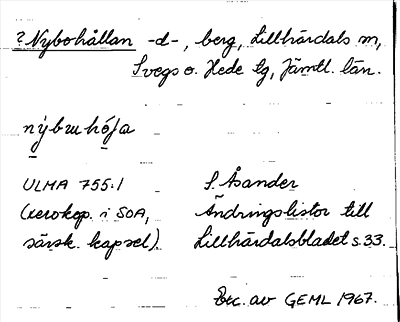 ? Nybohållan -d-, berg, Lillhärdals sn,
Svegs o. Hede tg, Jämtl. län.
ULMA 755:1 S. Åsander
(xerokop. i SOA, Ändringslistor till
särsk. kapsel). Lillhärdalsbladet s. 33.
Exc. av GEML 1967.